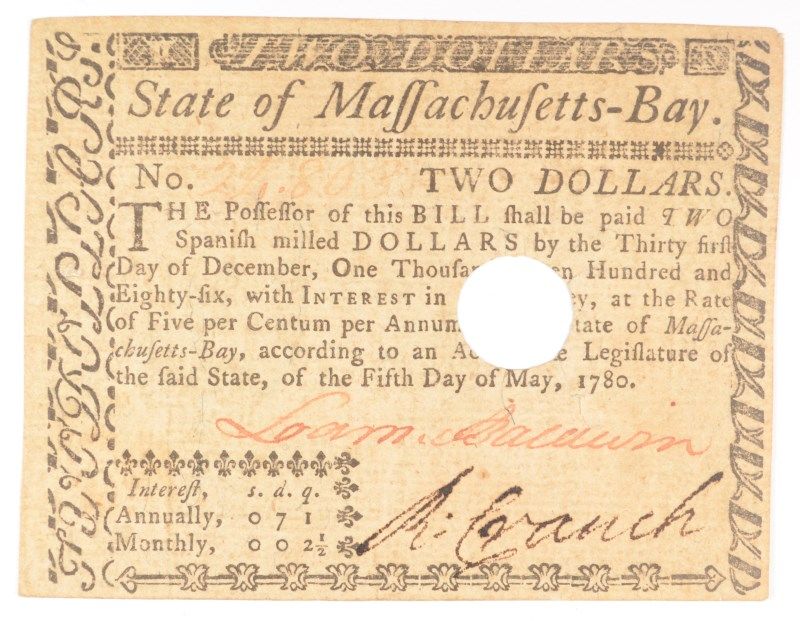 TWO DOLLARS
State of Maſſachuſetts-Bay.
No. TWO DOLLARS.
THE Poſſeſſor of this BILL ſhall be paid TWO
Spaniſh milled DOLLARS by the Thirty firſt
Day of December, One Thouſan en Hundred and
Eighty-ſix, with INTEREST in ey, at the Rate
of Five per Centum per Annum tate of Maſſa-
chuſetts-Bay, according to an A e Legiſlature of
the ſaid State, of the Fifth Day of May, 1780.
Loam. Baldwin
Intereſt, s. d. q.
Annually, 0 7 1
Monthly, 0 0 2½
R. Cranch